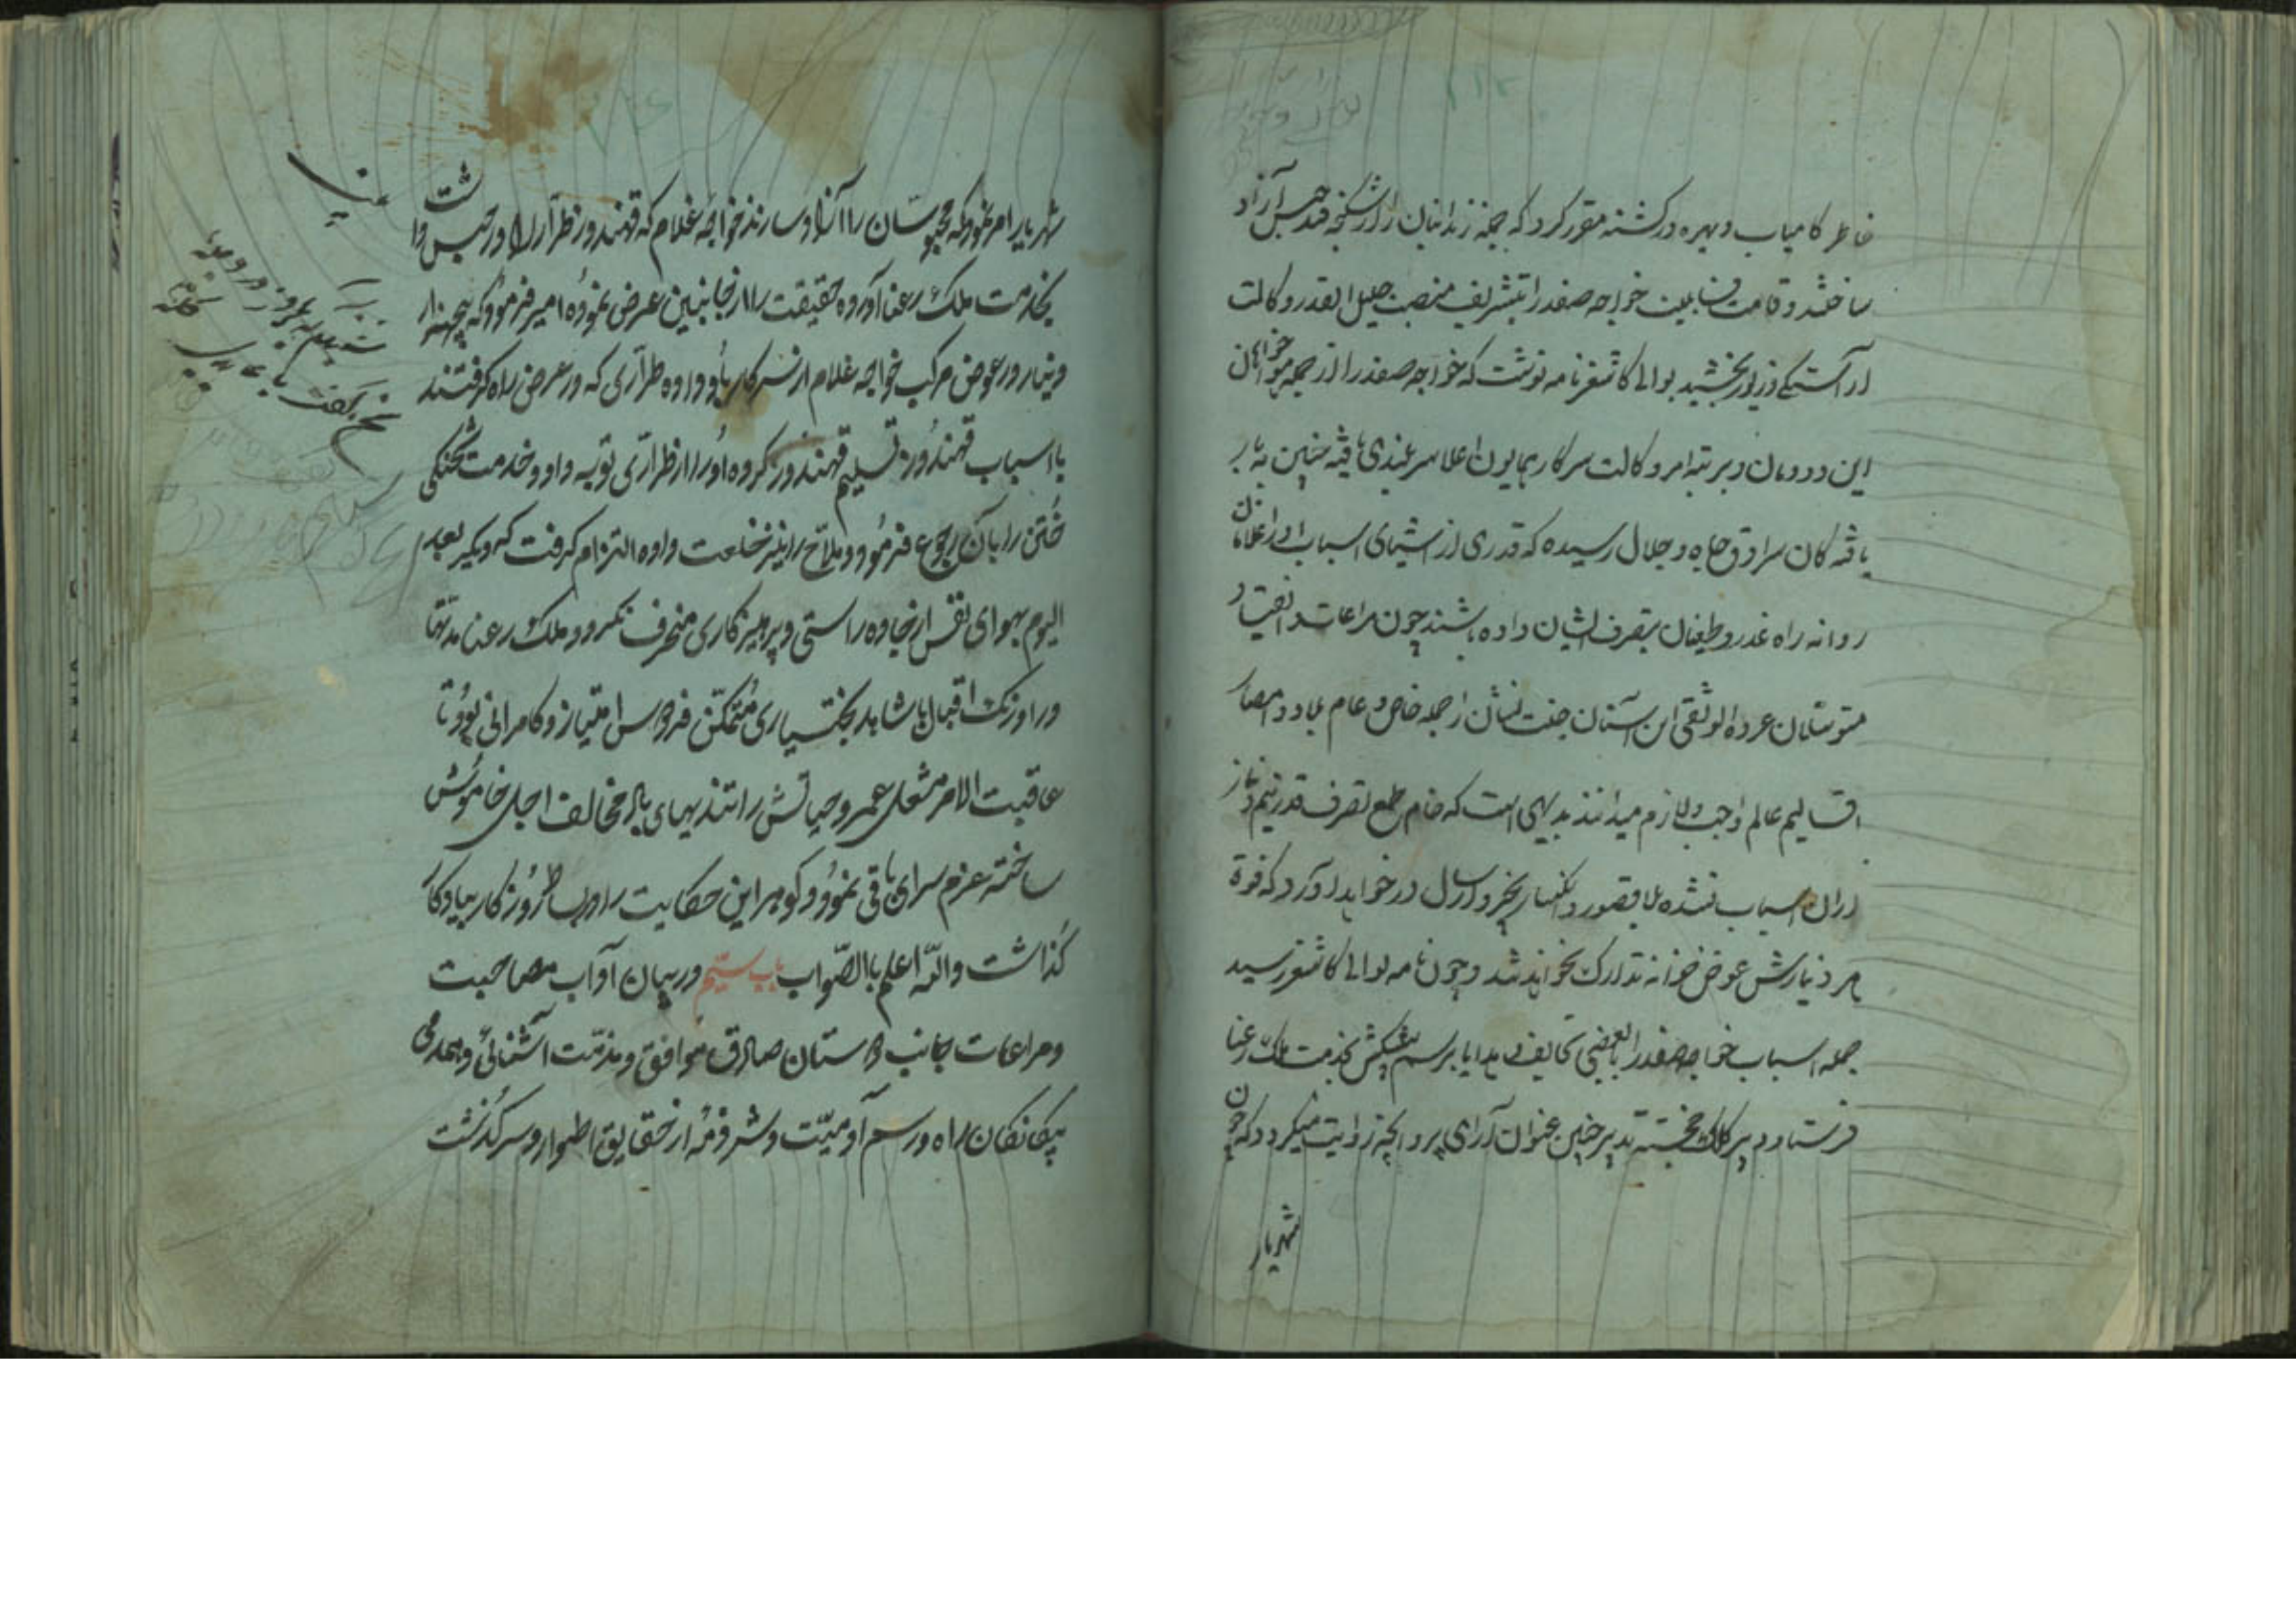 خاطر کامیاب و بهره ور کشته مقرر کرد که جمله زندانیان را از شکنجه قید حبس آزاد
ساختند و قامت قابلیت خواجه صفدر را بتشریف منصب جلیل القدر وکالت
اراستکی و زیور بخشید بوالی کاشغر نامه نوشت که خواجه صفدر را از جمله خواهان
این دودمان و بر تبه امر وکالت سرکار همایون اعلا سربلندی یافته چنین به
یافته کان سرادق جاه و جلال رسیده که قدری از اشیای اسباب او را غلامان
روانه راه غدر و طغیان بتصرف ایشان داده باشند چون مراعات و انقیاد
متوسلان عروه الوثقی این آستان جنت نشان از جمله خاص و عام بلاد و امصار
اقالیم عالم واجب و لازم میدانند بدیهی است که خام طمع تصرف قدر نیم دینار
ازان اسباب نشده بلا قصور و انکسار بخیر و ارسال در خواهد آورد که فوة
هر دینارش عوض خزانه تدارک نخواهد شد و چون نامه بوالی کاشغر رسید
جمله اسباب خواجه صفدر را با بعضی تحایف و هدایا برسم پیشکش بخدمت ملک رعنا
فرستاد و دبیر کلک خجسته تدبیر چنین عنوان آرای پروانچه روایت میکردد که چون
شهریار
شهریار امر نمود که محبوسان را آزاد سازند خواجه غلام که قهندور طرار را در حبس داشت
بخدمت ملک رعنا آورده حقیقت را از جانبین عرض نموده امیر فرمود که پنجهزار
دینار در عوض مرکب خواجه غلام از سرکار باو داده طراری که در عرض راه کرفتند
با اسباب قهندور تسلیم قهندور کرده او را از طراری توبه داد و خدمت شحنکی
ختن را بآن رجوع فرمود و ملاح را نیز خلعت داده التزام کرفت که دیکر بعد
الیوم بهوای نفس از جاده راستی و پرهیزکاری منحرف نکردد و ملک رعنا مدتها
در اورنک اقبال با شاهد بختیاری متمکن فردوس امتیاز و کامرانی بود تا
عاقبت الامر مشعل عمر و حیاتش را تندبهای باد مخالف اجل خاموش
ساخته عزم سرای باقی نمود و کوهر این حکایت را در بساط روزکار بیادکار
کذاشت والله اعلم باالصواب باب ستیم در بیان آداب مصاحبت
و مراعات جانب دوستان صادق موافق و مذمت اشنائی و همدمی
بیکانکان راه و رسم آدمیت و شرذمه از حقایق اطوار و سرکذشت